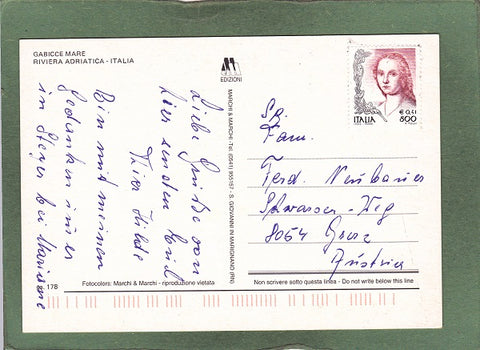 GABICCE MARE
RIVIERA ADRIATICA - ITALIA
EDIZIONI
ITALIA
€ 0,41
800
MARCHI & MARCHI - Tel. (0541) 955157 - S. GIOVANNI IN MARIGNANO (RN)
Liebe Grüße von
hier senden Emil
Bin mit meinen
Gedanken immer
in
bei
Fam.
Ferd. Neubauer
Schwasser-Weg
8054 Graz
Austria
178
Fotocolors: Marchi & Marchi - riproduzione vietata
Non scrivere sotto questa linea - Do not write below this line